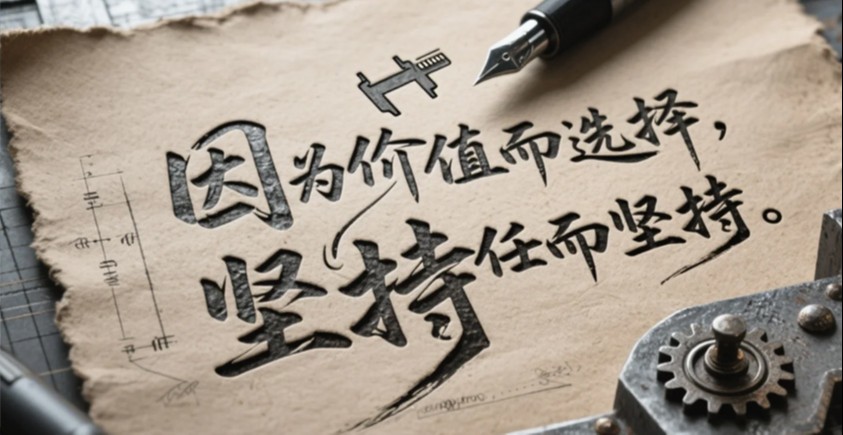 因为价值而选择，
坚持任而坚持。